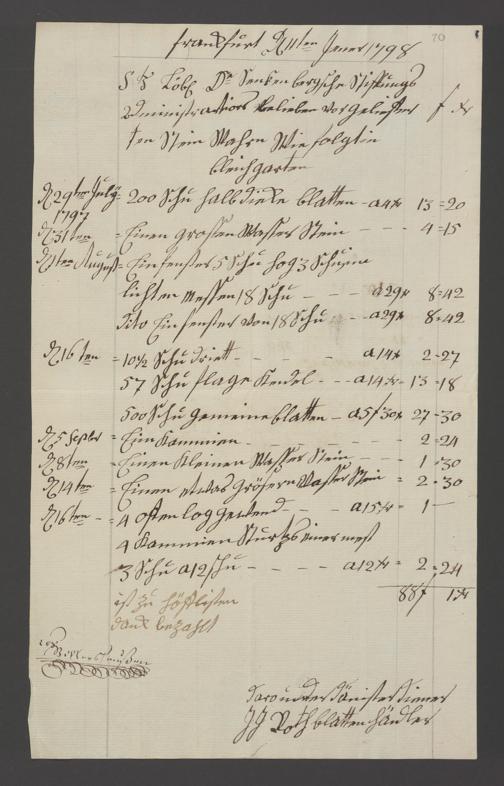 70
Franckfurt d 11ten Jener 1798
Löbl Dr Senckenbergsche Stifftungs
Administration belieben vor geliefer
f xr
ten Stein Wahrn Wie folgt in
bleichgarten
d 29ten July 1797 = 200 Schu halb dicke blatten - a 4 xr 13 = 20
d 31ten = Einen grossen Wasser Stein - - - 4 = 15
d 1ten August = Ein fenster 5 Schu hog 3 Schu im
lichten messen 18 Schu - - - a 29 xr 8 = 42
dito Ein fenster von 18 Schu - - a 29 xr 8 = 42
d 16ten = 10 1/2 Schu dritt - - - - a 14 xr 2 - 27
57 Schu flage Kendel - - a 14 xr = 13 - 18
500 Schu gemeine blatten - a 5 f 30 xr 27 - 30
d 5 Septbr = Ein Kammien - - - - - 2 = 24
d 8ten = Einen Kleinen Wasser Stein - - - 1 = 30
d 14ten = Einen etwas grösern Wasser Stein = 2 - 30
d 16ten - = 4 offen log gewend - - - a 15 xr = 1 —
4 Kammien Sturtz einer mest
3 Schu a 12 schu - - - - a 12 xr = 2 = 24
88 f 1 xr
ist zu höfflisten
danck bezahlt
dero unterdänister diener
JJ Roth blatten händler